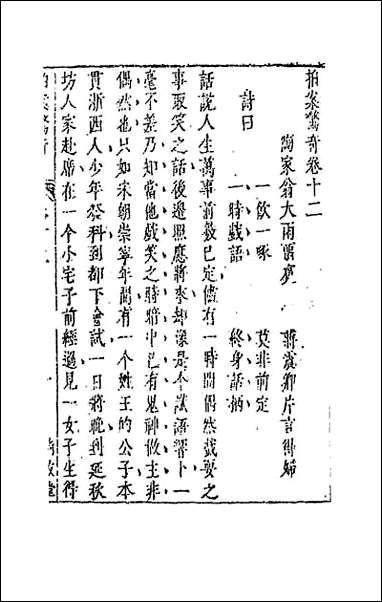 拍案驚奇卷十二
陶家翁大雨留賓　蔣震卿片言得婦
詩曰
一飲一啄　莫非前定
一時戲語　終身話柄
話說人生萬事前數已定儘有一時間偶然戲耍之
事取笑之話後邊照應將來却像是個讖語響卜一
毫不差乃知當他戲笑之時暗中已有鬼神做主非
偶然也只如宋朝崇寧年間有一个姓王的公子本
貫浙西人少年發科到都下會試一日將晚到延秋
坊人家赴席在一个小宅子前經過見一女子生得
拍案驚奇
尚友堂